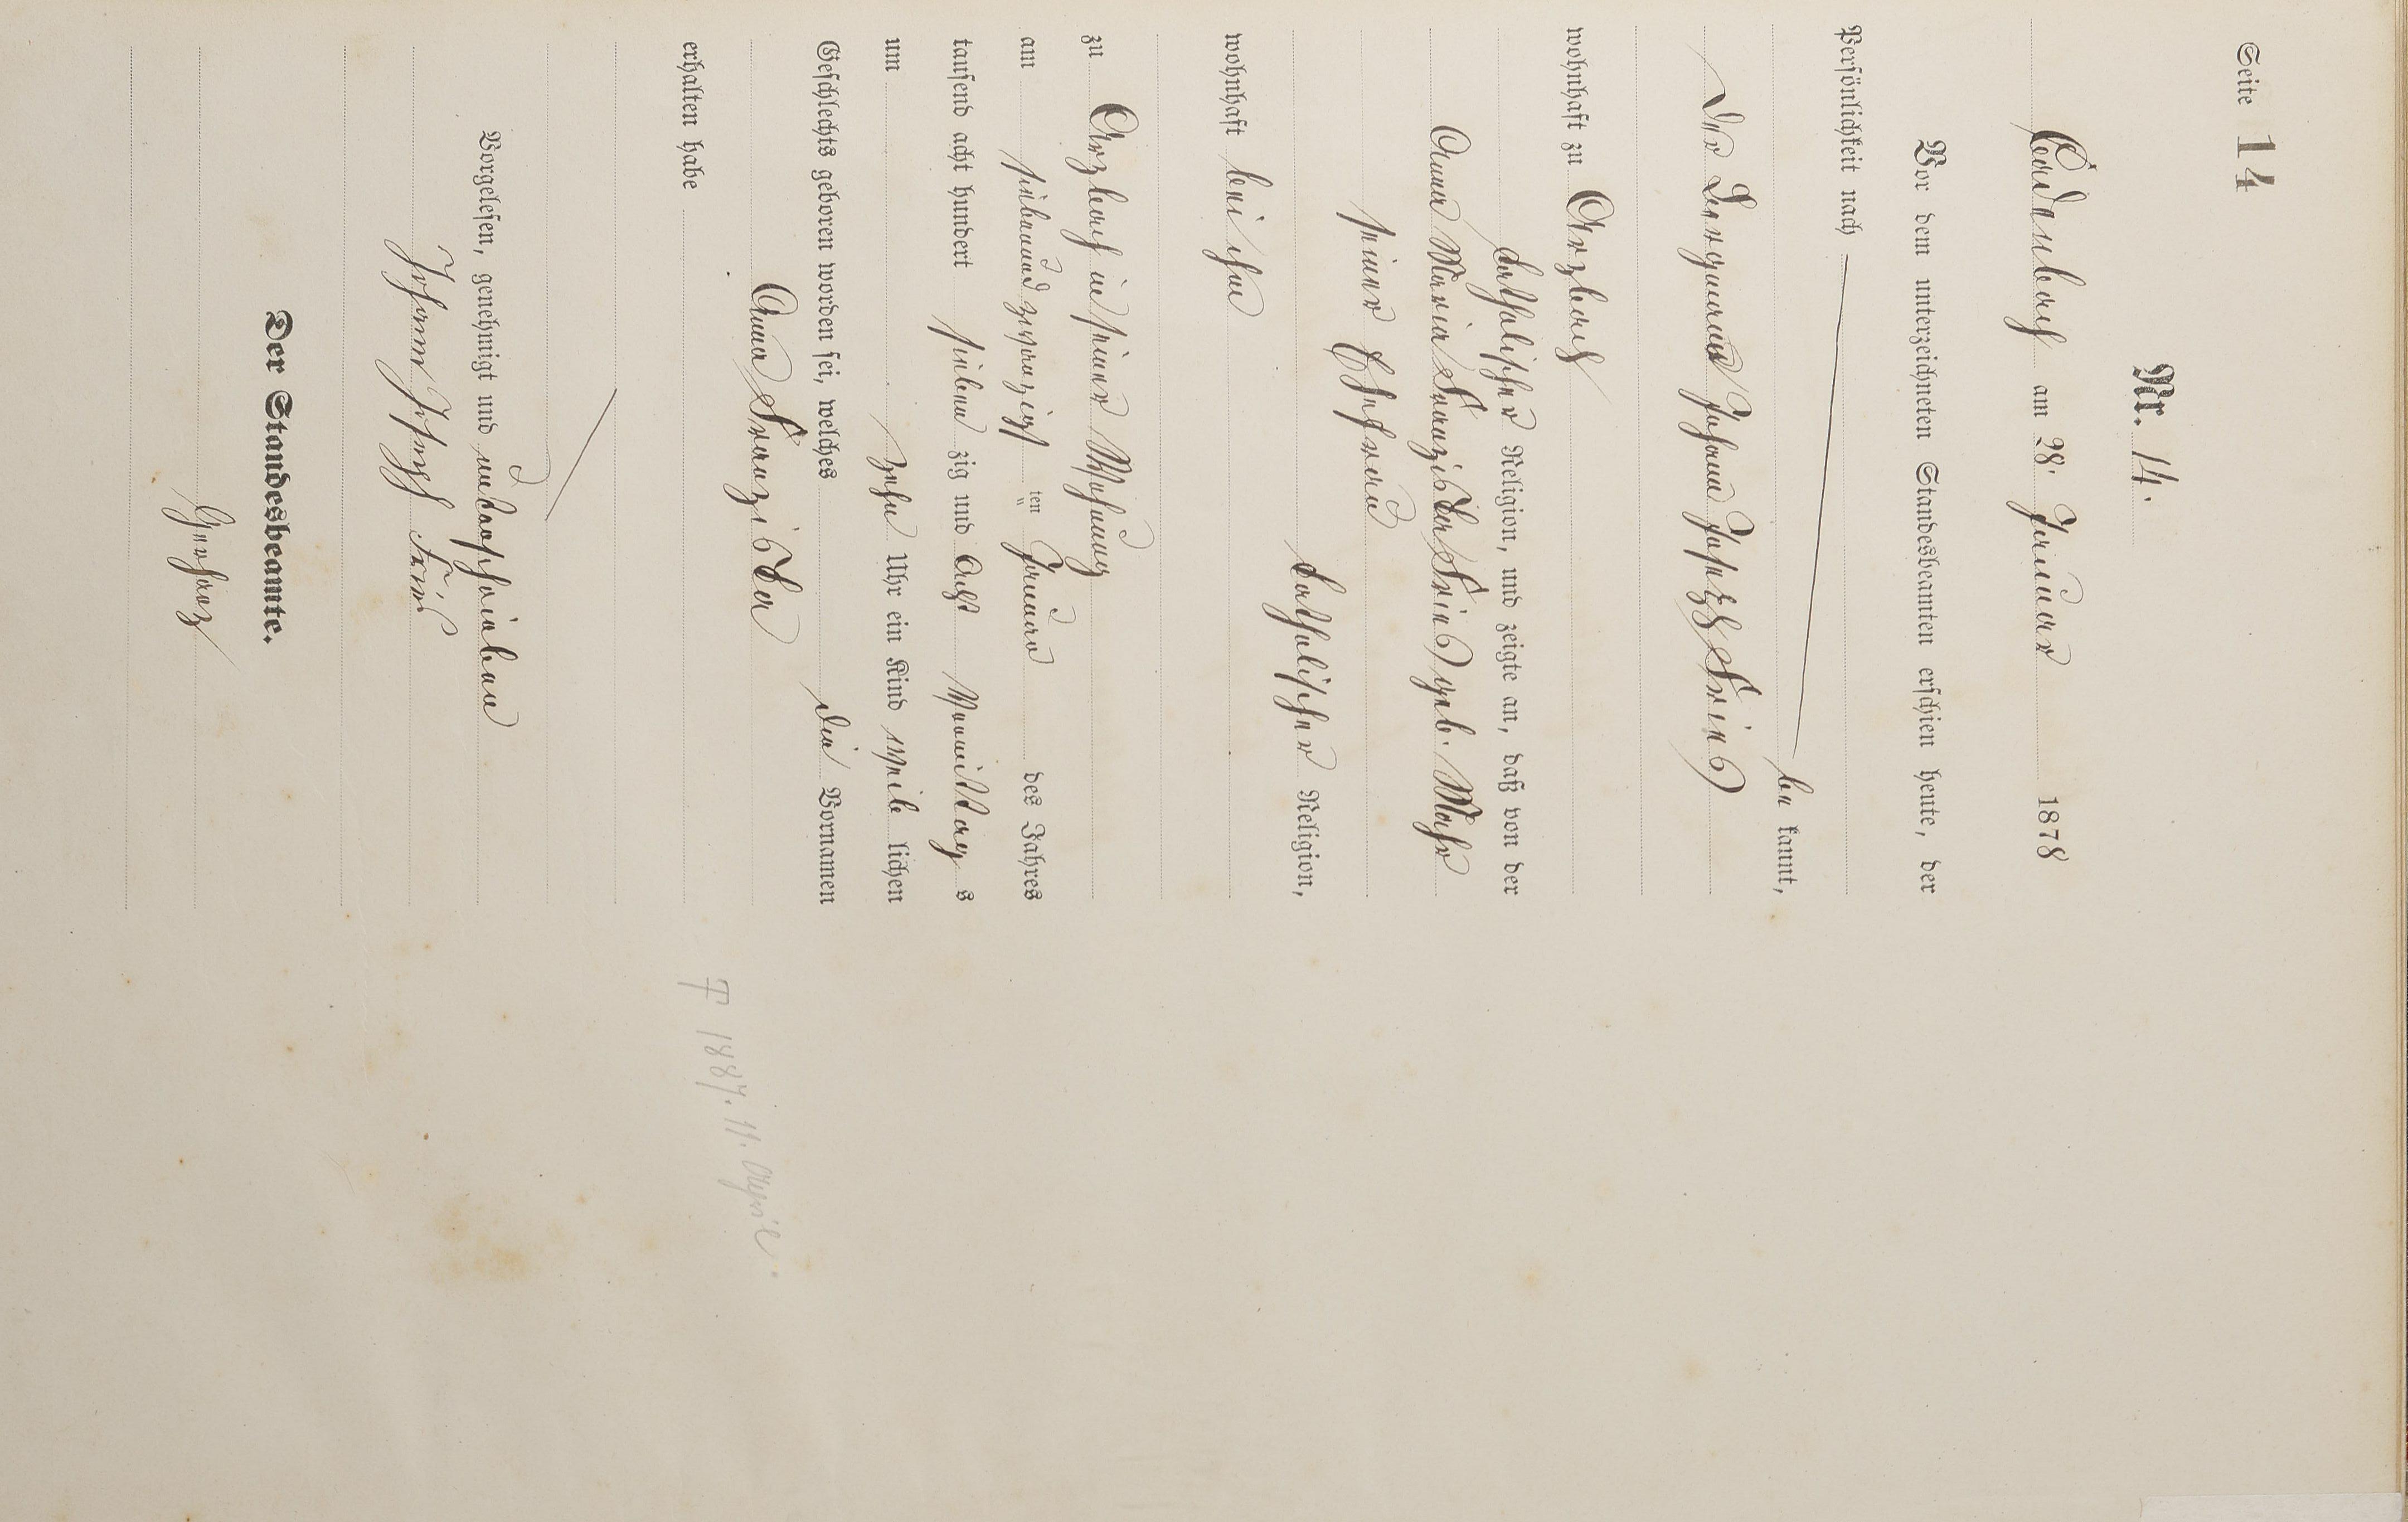 Seite 14
Nr. 14.
Cadenbach am 28. Januar 1878
Vor dem unterzeichneten Standesbeamten erschien heute, der
Persönlichkeit nach
be kannt,
der Bergmann Johann Joseph Frink
wohnhaft zu Arzbach
katholischer Religion, und zeigte an, daß von der
Anna Maria Franziska Frink geb. Mohr
seiner Ehefrau
katholischer Religion,
wohnhaft bei ihm
zu Arzbach in seiner Wohnung
am siebenundzwanzigsten Januar des Jahres
tausend acht hundert sieben zig und acht Vormittag s
um zehn Uhr ein Kind weib lichen
Geschlechts geboren worden sei, welches die Vornamen
Anna Franziska
erhalten habe
Vorgelesen, genehmigt und unterschrieben
Johann Joseph
Der Standesbeamte.
† 1887. 11. April.